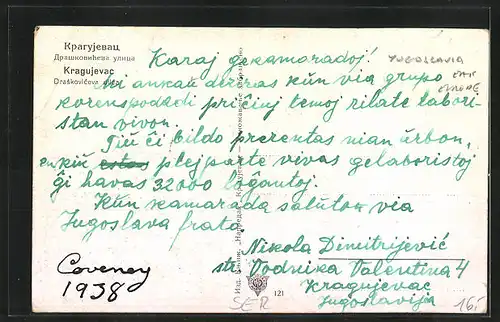 Крагујевац
Драшковићева улица
Kragujevac
Draškovićeva ulica
Karaj gekamaradoj!
YUGOSLAVIA
Mi ankaŭ deziras kun via grupo
korespondadi pri ĉiuj temoj rilate labori-
stan vivon.
Tiu ĉi bildo prezentas nian urbon,
en kiu estas plejparte vivas gelaboristoj
ĝi havas 32000 loĝantoj.
Kun kamarada saluton via
Jugoslava frato,
Nikola Dimitrijević
str. Vodnika Valentina 4
Kragujevac
Jugoslavija
Coveney
1938
SER
121
16: